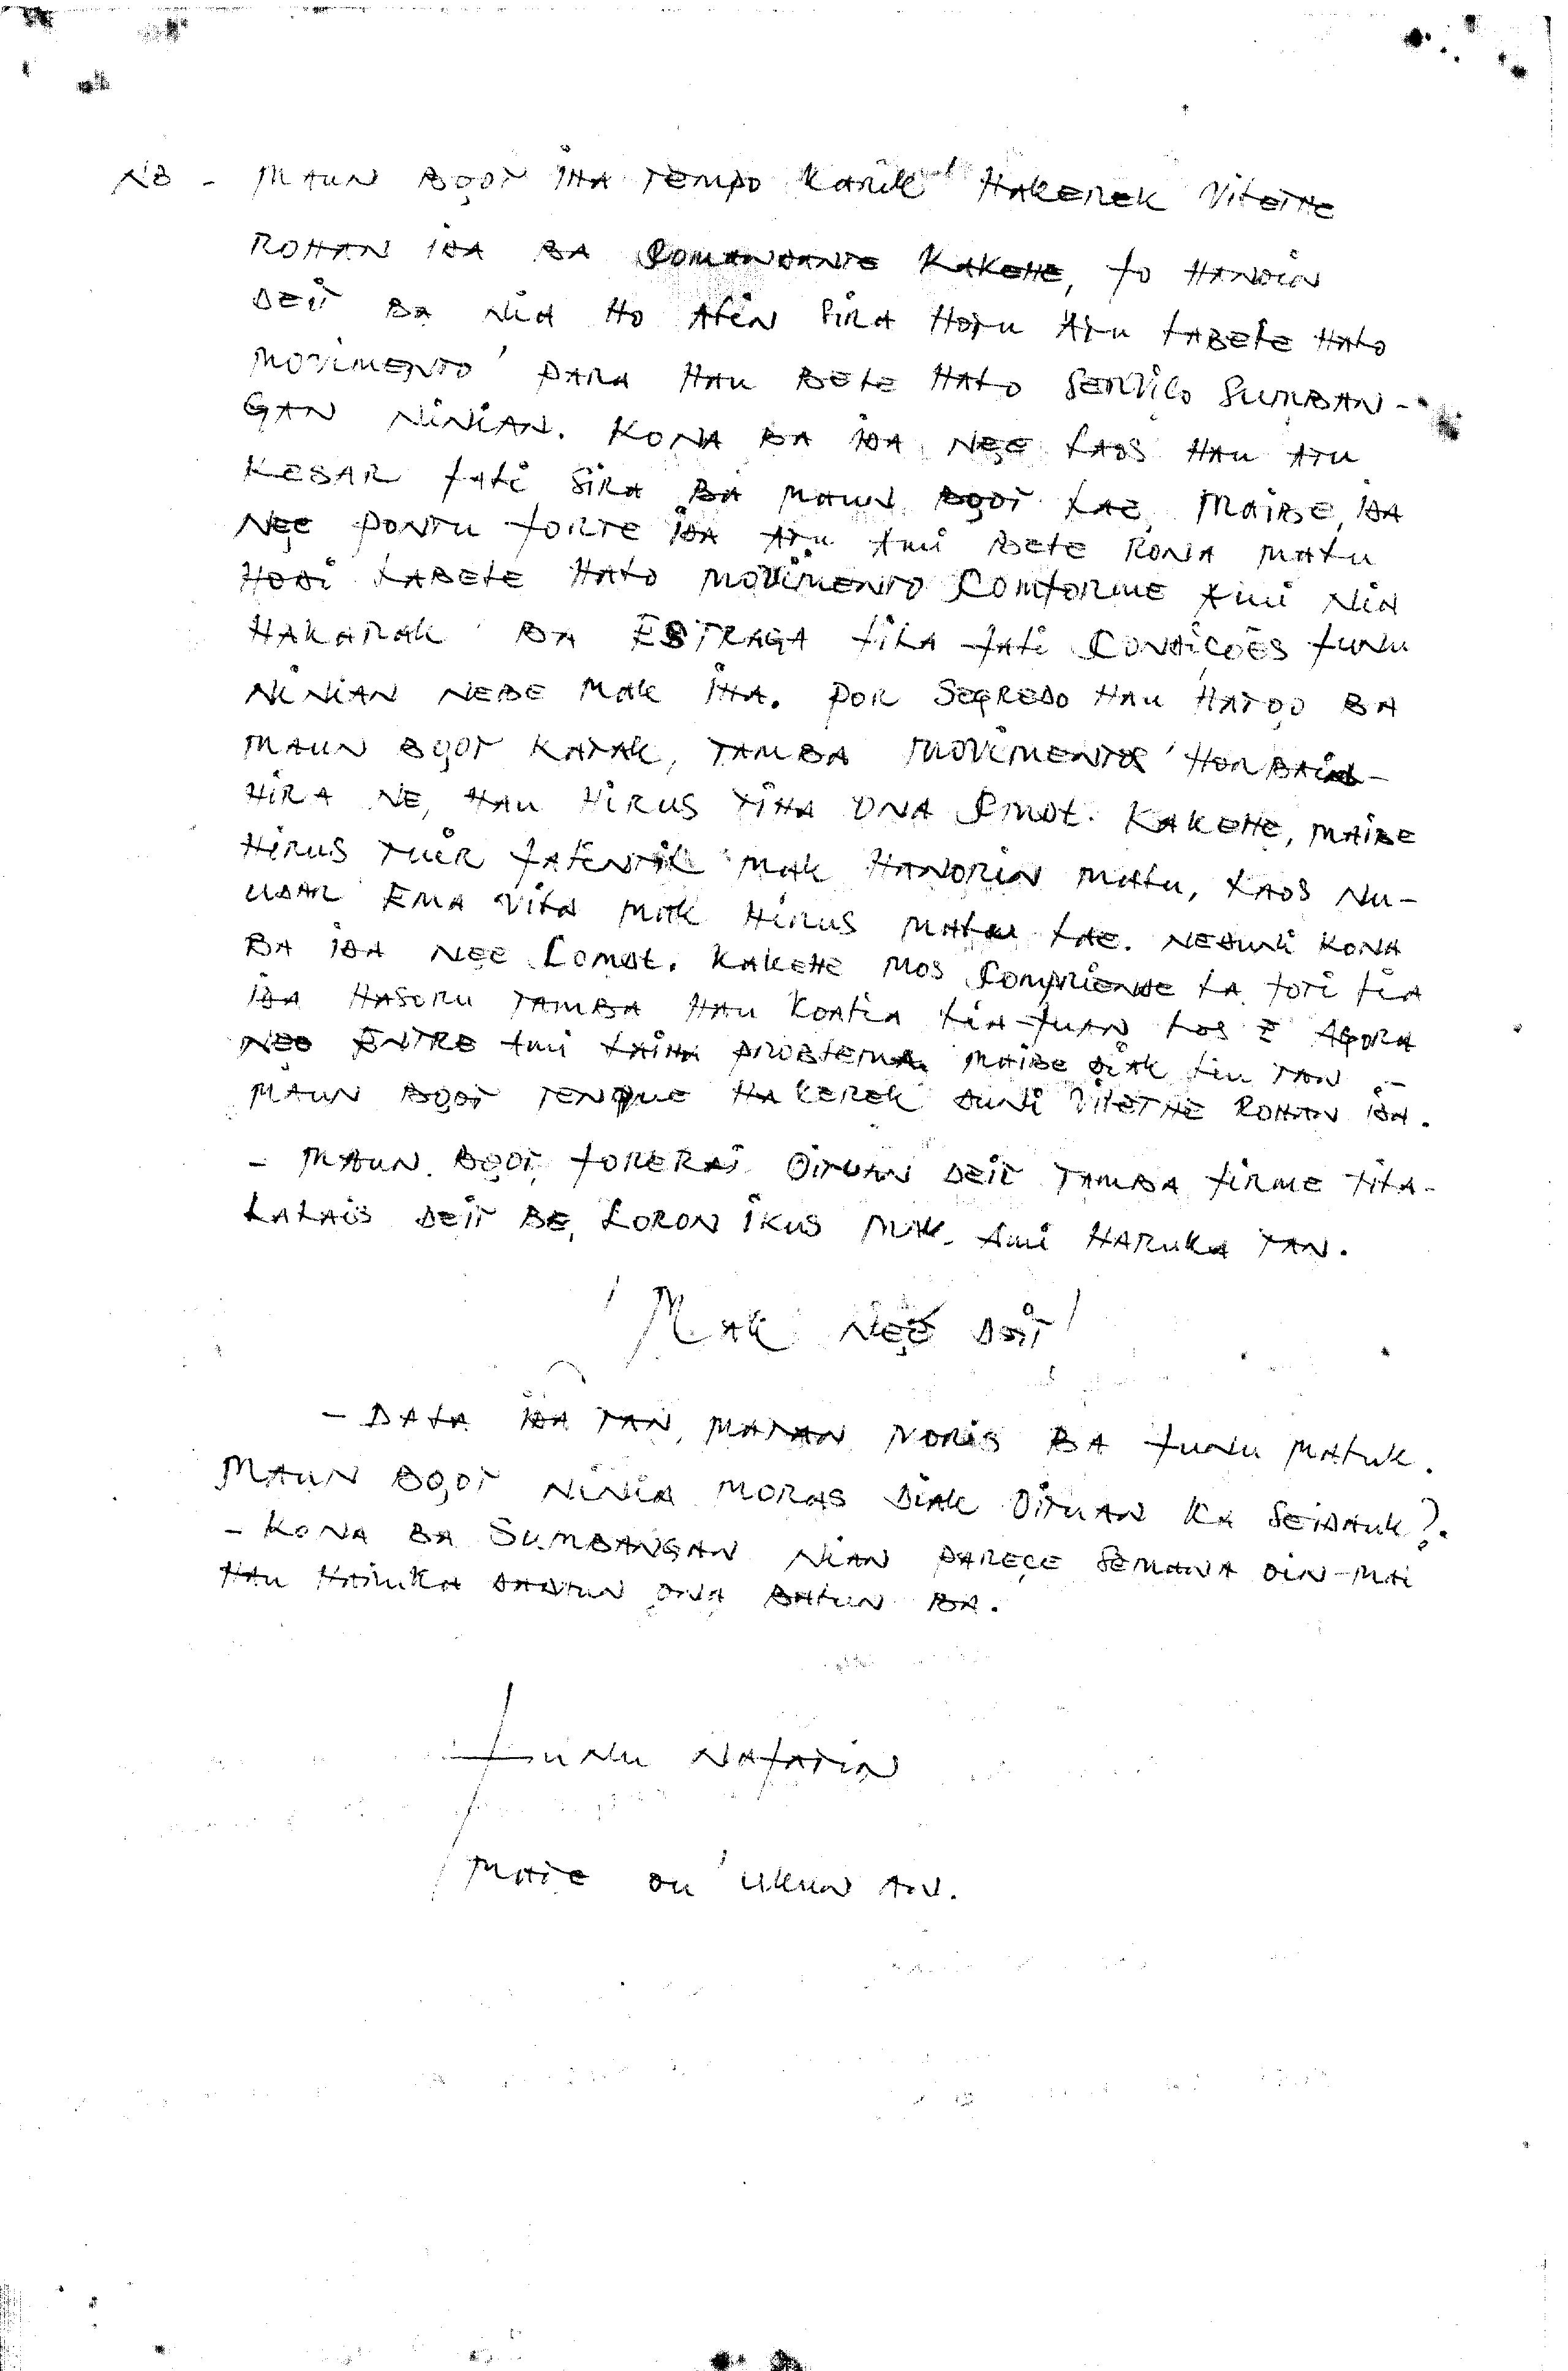 NB - MAUN BOOT IHA TEMPO KARIK HAKEREK VILETHE
ROHAN IDA BA COMANDANTE KAKEHE, FO HANOIN
DEIT BA NIA HO ALIN SIRA HOTU ATU LABELE HALO
MOVIMENTO PARA HAU BELE HALO SERVICO SUMBAN-
GAN NINIAN. KONA BA IDA NEE LAOS HAU ATU
KESAR FALI SIRA BA MAUN BOOT LAE, MAIBE, IDA
NEE PONTU FORTE IDA ATU AMI BELE RONA MALU
HODI LABELE HALO MOVIMENTO COMFORME AMI NIA
HAKARAK BA ESTRAGA FILA FALI CONDIÇOES FUNU
NINIAN NEBE MAK IHA. POR SEGREDO HAU HATOO BA
MAUN BOOT KATAK, TAMBA MOVIMENTO HORBAIN-
HIRA NE, HAU HIRUS TIHA ONA CMDT. KAKEHE, MAIBE
HIRUS TUIR FATINTIL MAK HANORIN MALU, LAOS NU-
UDAR EMA VILA MAK HIRUS MALU LAE. NEDUNI KONA
BA IDA NEE COMDT. KAKEHE MOS COMPRIENDE LA FOTI LIA
IDA HASORU TAMBA HAU KOALIA LIA-FUAN LOS E AGORA
NEE ENTRE AMI LAIHA PROBLEMA, MAIBE DIAK LIU TAN
MAUN BOOT TENQUE HAKEREK DUNI VILETHE ROHAN IDA.
- MAUN BOOT, FORERAI OITUAN DEIT TAMBA FIRME TILA-
LALAIS DEIT BE, LORON IKUS MAK AMI HARUKA TAN.
MAK NEE DEIT
- DALA IDA TAN, MANAN NORIS BA FUNU MALUK.
MAUN BOOT NINIA MORAS DIAK OITUAN KA SEIDAUK?.
- KONA BA SUMBANGAN NIAN PARECE SEMANA OIN-MAI
HAU HARUKA DADAUN ONA BALUN BA.
FUNU NAFATIN
MATE OU UKUN AN.